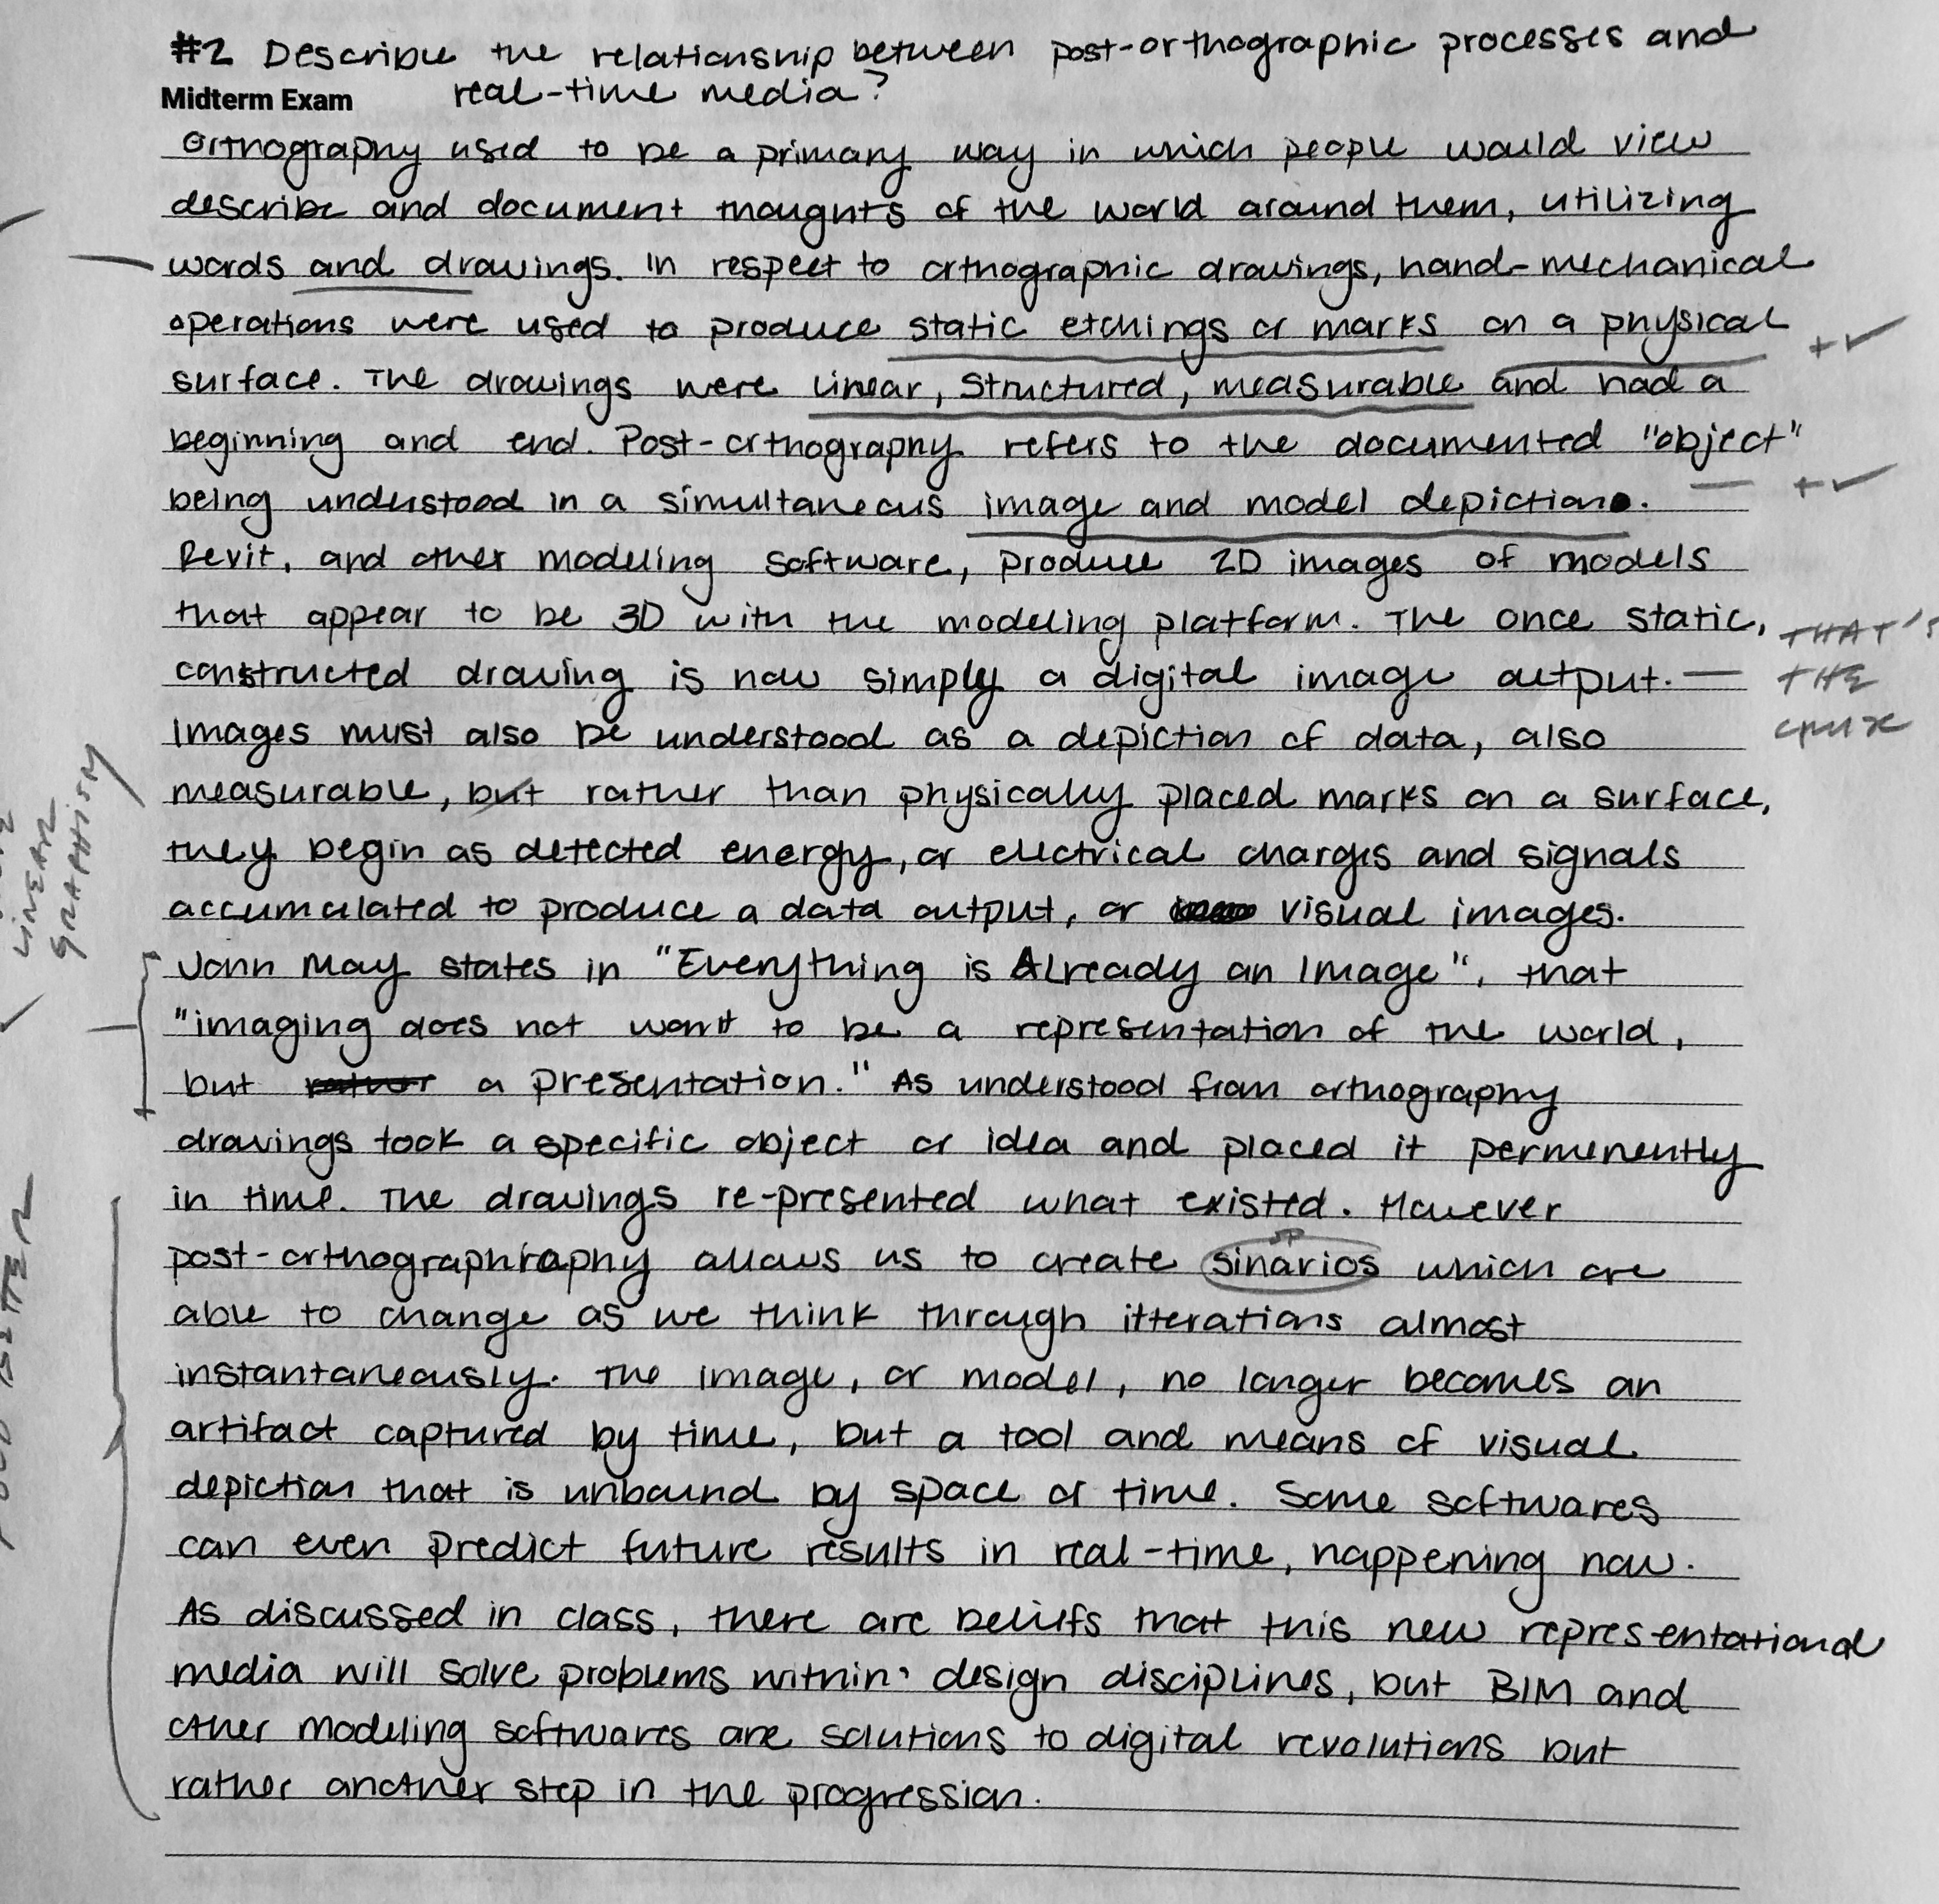 #2 Describe the relationship between post-orthographic processes and
Midterm Exam real-time media?
Orthography used to be a primary way in which people would view
describe and document thoughts of the world around them, utilizing
words and drawings. In respect to orthographic drawings, hand-mechanical
operations were used to produce static etchings or marks on a physical
surface. The drawings were linear, structured, measurable and had a
beginning and end. Post-orthography refers to the documented "object"
being understood in a simultaneous image and model depiction.
Revit, and other modeling software, produce 2D images of models
that appear to be 3D with the modeling platform. The once static,
THAT'S
constructed drawing is now simply a digital image output.
THE
Images must also be understood as a depiction of data, also
crux
measurable, but rather than physically placed marks on a surface,
they begin as detected energy, or electrical charges and signals
accumulated to produce a data output, or visual images.
LINEAR
GRAPHISM
John May states in "Everything is Already an Image", that
"imaging does not want to be a representation of the world,
but rather a presentation." As understood from orthography
drawings took a specific object or idea and placed it permenently
in time. The drawings re-presented what existed. However
sp
post-orthographraphy allows us to create sinarios which are
able to change as we think through itterations almost
instantaneously. The image, or model, no longer becomes an
artifact captured by time, but a tool and means of visual
depiction that is unbound by space or time. Some softwares
can even predict future results in real-time, happening now.
As discussed in class, there are beliefs that this new representational
media will solve problems within design disciplines, but BIM and
other modeling softwares are solutions to digital revolutions but
rather another step in the progression.